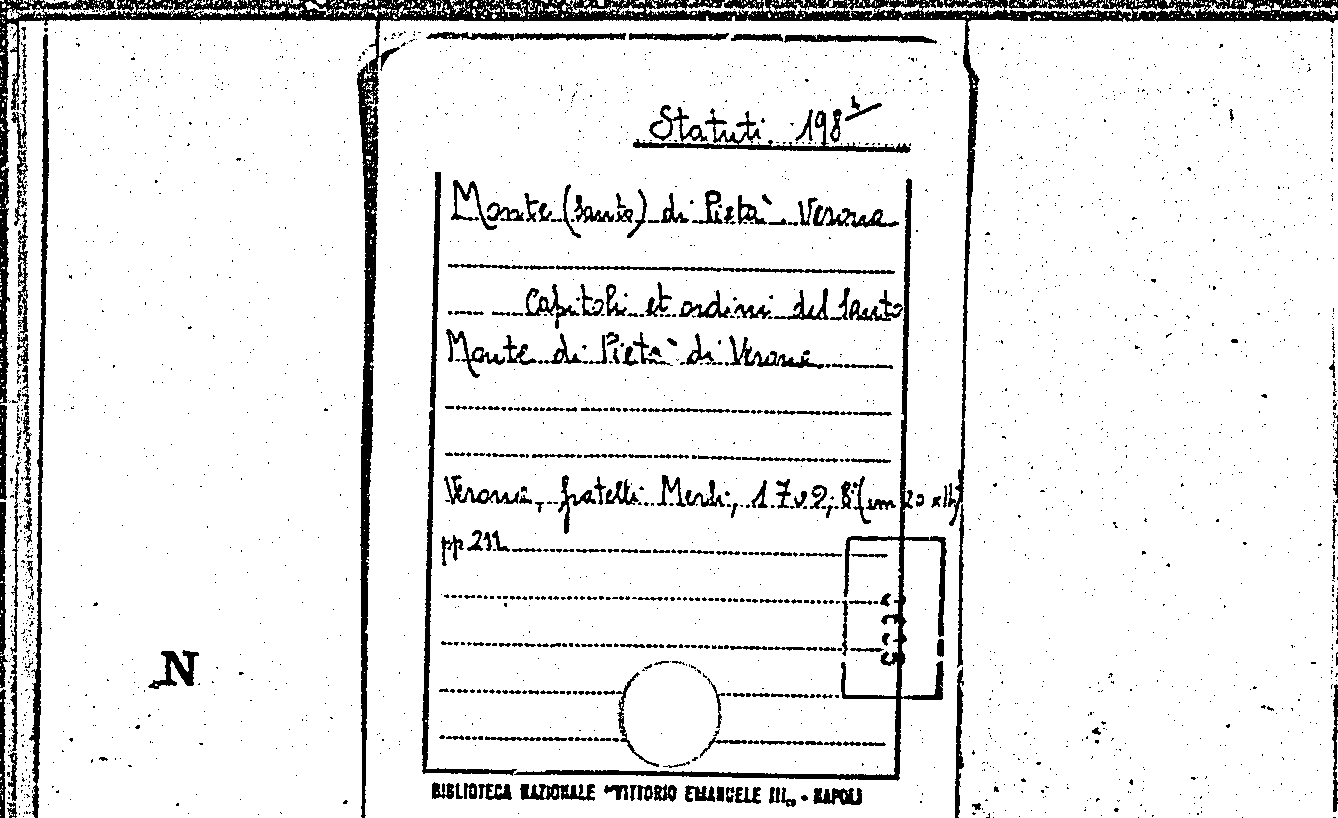 Statuti. 198
Monte (Santo) di Pietà. Verona
Capitoli et ordini del Santo
Monte di Pietà di Verona
Verona, fratelli Merlo, 1709; 8° (cm 20 x
pp 211
N
BIBLIOTECA NAZIONALE "VITTORIO EMANUELE III„ - NAPOLI